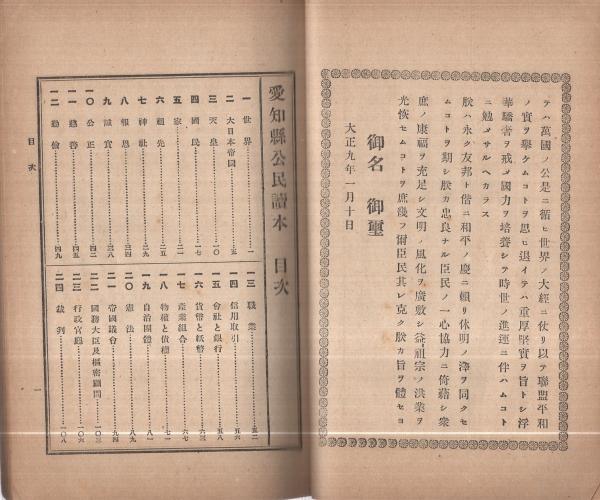 テハ萬國ノ公是ニ循ヒ世界ノ大經ニ仗リ以テ聯盟平和
ノ實ヲ擧ケムコトヲ思ヒ退イテハ重厚堅實ヲ旨トシ浮
華驕奢ヲ戒メ國力ヲ培養シテ時世ノ進運ニ伴ハムコト
ニ勉メサルヘカラス
朕ハ永ク友邦ト偕ニ和平ノ慶ニ賴リ休明ノ澤ヲ同クセ
ムコトヲ期シ朕カ忠良ナル臣民ノ一心協力ニ倚藉シ衆
庶ノ康福ヲ充足シ文明ノ風化ヲ廣敷シ益祖宗ノ洪業ヲ
光恢セムコトヲ庶幾フ爾臣民其レ克ク朕カ旨ヲ體セヨ
御名 御璽
大正九年一月十日
愛知縣公民讀本 目次
一 世界……一
二 大日本帝國……五
三 天皇……一〇
四 國民……一七
五 家……二一
六 祖先……二五
七 神社……二九
八 報恩……三四
九 誠實……三八
一〇 公正……四二
一一 慈善……四五
一二 勤儉……四九
一三 職業……五二
一四 信用取引……五六
一五 會社と銀行……五八
一六 貨幣と紙幣……六三
一七 產業組合……六七
一八 物權と債權……七一
一九 自治團體……八一
二〇 憲法……八七
二一 帝國議會……九四
二二 國務大臣及樞密顧問……一〇三
二三 行政官廳……一〇六
二四 裁判……一〇八
目次
一